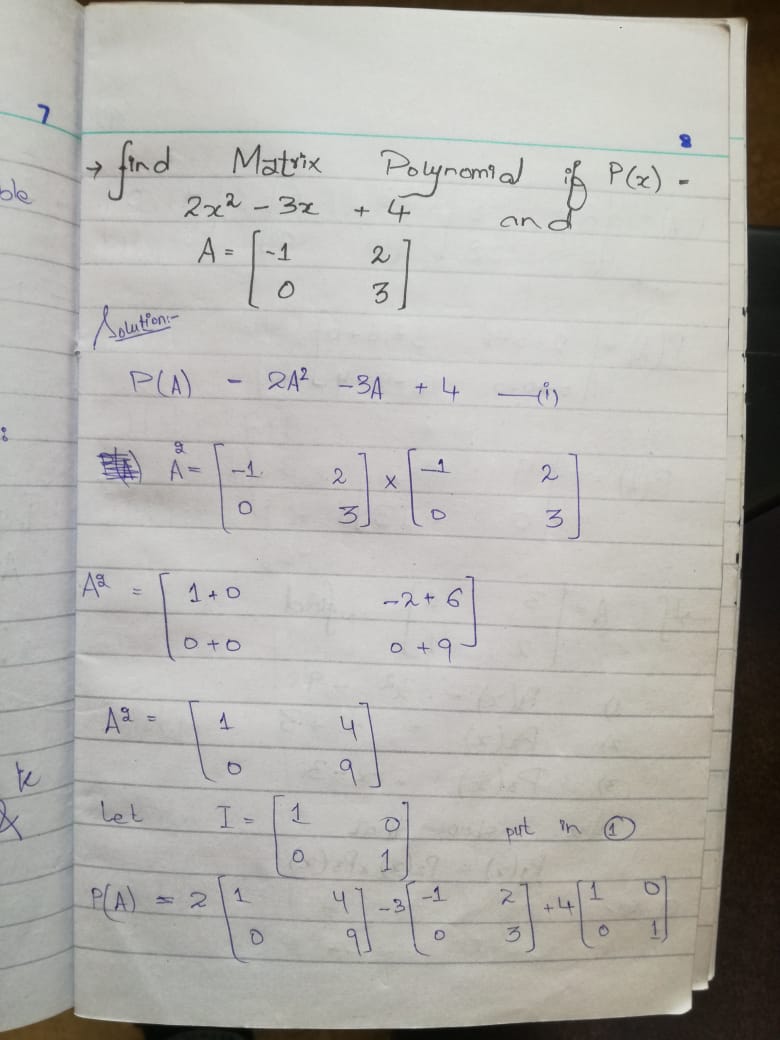 7
8
ble
→ find Matrix Polynomial if P(x) -
2x² - 3x + 4 and
A = [-1 2
0 3]
Solution:-
P(A) - 2A² - 3A + 4 —(i)
A² = [-1 2
0 3] × [-1 2
0 3]
A² = [1+0 -2+6
0+0 0+9]
A² = [1 4
0 9]
Let I = [1 0
0 1] put in ①
P(A) = 2 [1 4
0 9] -3 [-1 2
0 3] +4 [1 0
0 1]